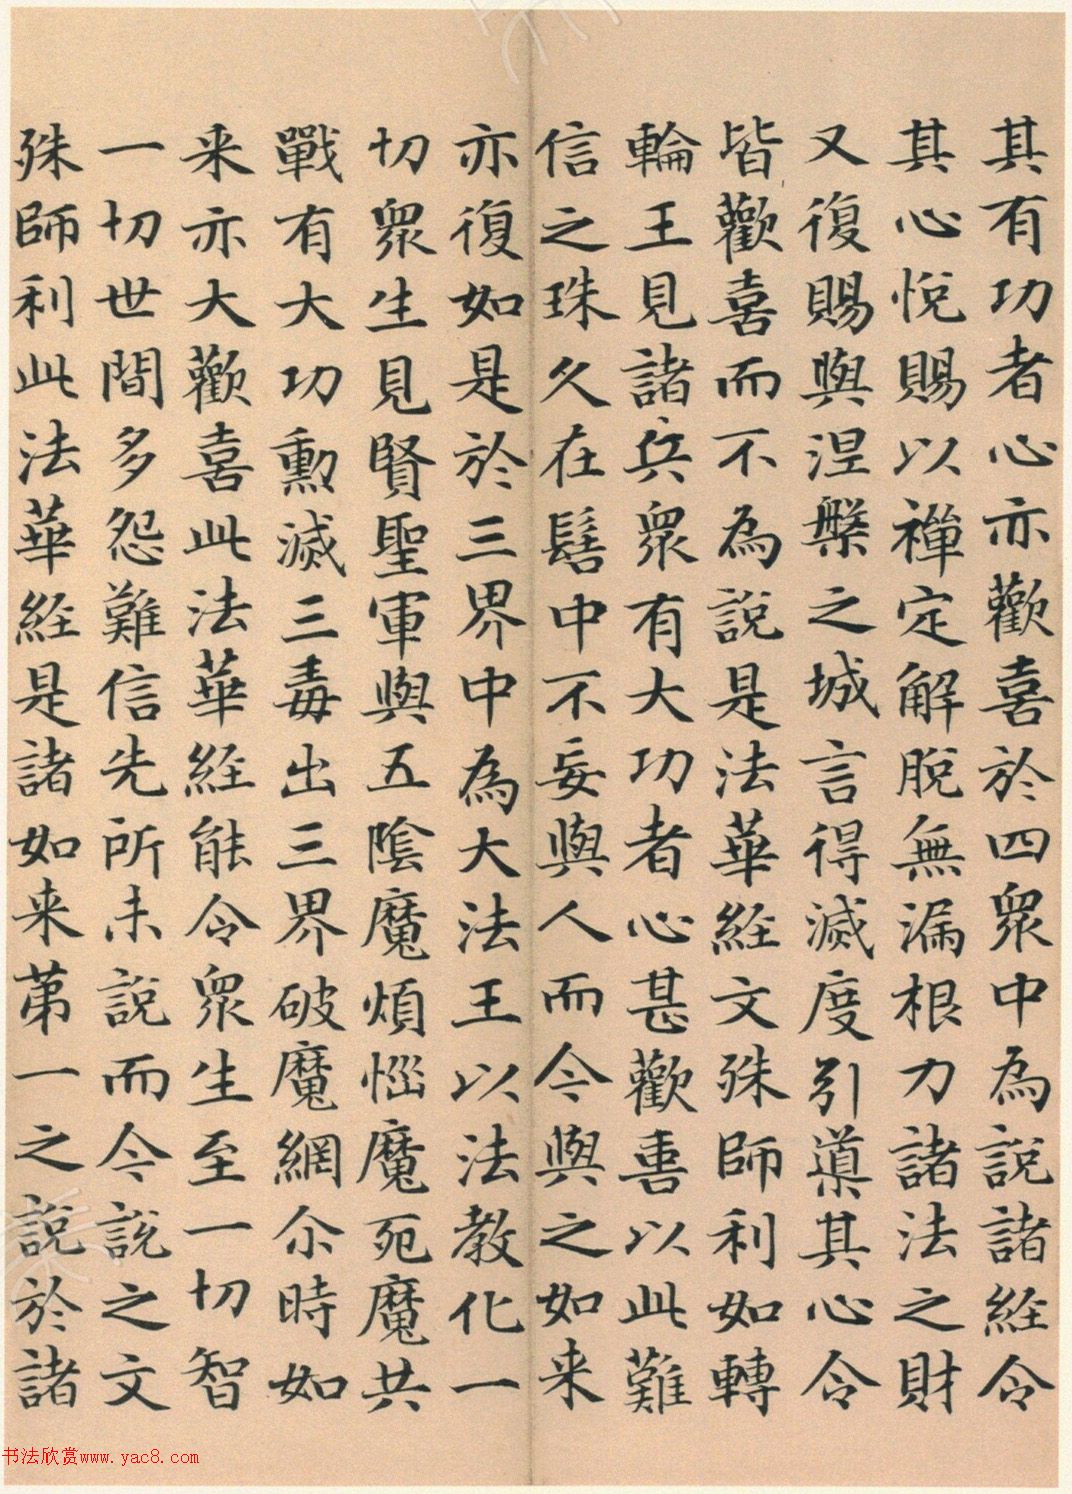 其有功者心亦歡喜於四眾中為說諸經令
其心悅賜以禪定解脫無漏根力諸法之財
又復賜與涅槃之城言得滅度引導其心令
皆歡喜而不為說是法華經文殊師利如轉
輪王見諸兵眾有大功者心甚歡喜以此難
信之珠久在髻中不妄與人而今與之如来
亦復如是於三界中為大法王以法教化一
切眾生見賢聖軍與五陰魔煩惱魔死魔共
戰有大功勳滅三毒出三界破魔網尒時如
来亦大歡喜此法華經能令眾生至一切智
一切世間多怨難信先所未說而今說之文
殊師利此法華經是諸如来苐一之說於諸
书法欣赏www.yac8.com